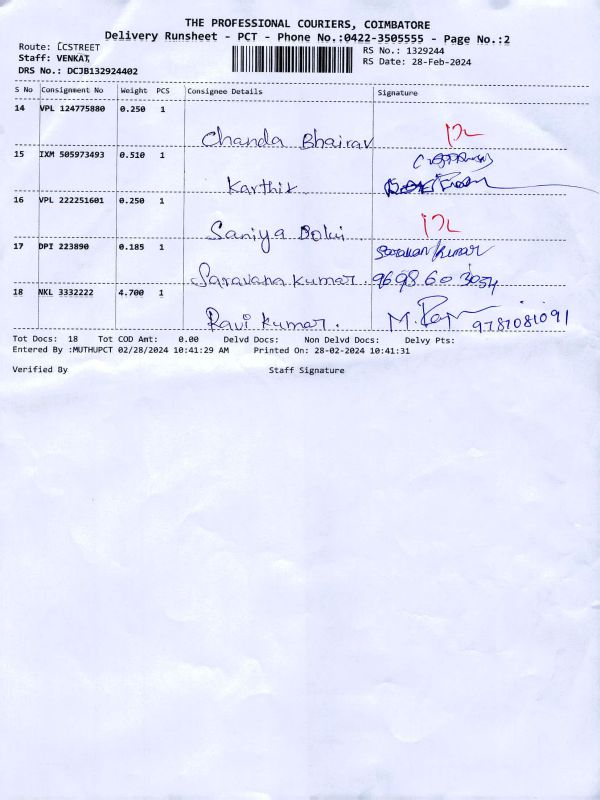 THE PROFESSIONAL COURIERS, COIMBATORE
Delivery Runsheet - PCT - Phone No.:0422-3505555 - Page No.:2
Route: LCSTREET
RS No.: 1329244
Staff: VENKAT
RS Date: 28-Feb-2024
DRS No.: DCJB132924402
S No Consignment No Weight PCS Consignee Details Signature
14 VPL 124775880 0.250 1
Chanda Bhairav
15 IXM 505973493 0.510 1
Karthik
16 VPL 222251601 0.250 1
Saniya
17 DPI 223890 0.185 1 Saravan Kumar
Saravana kumar. 9698603054
18 NKL 3332222 4.700 1
Ravi Kumar. 9787081091
Tot Docs: 18 Tot COD Amt: 0.00 Delvd Docs: Non Delvd Docs: Delvy Pts:
Entered By :MUTHUPCT 02/28/2024 10:41:29 AM Printed On: 28-02-2024 10:41:31
Verified By Staff Signature